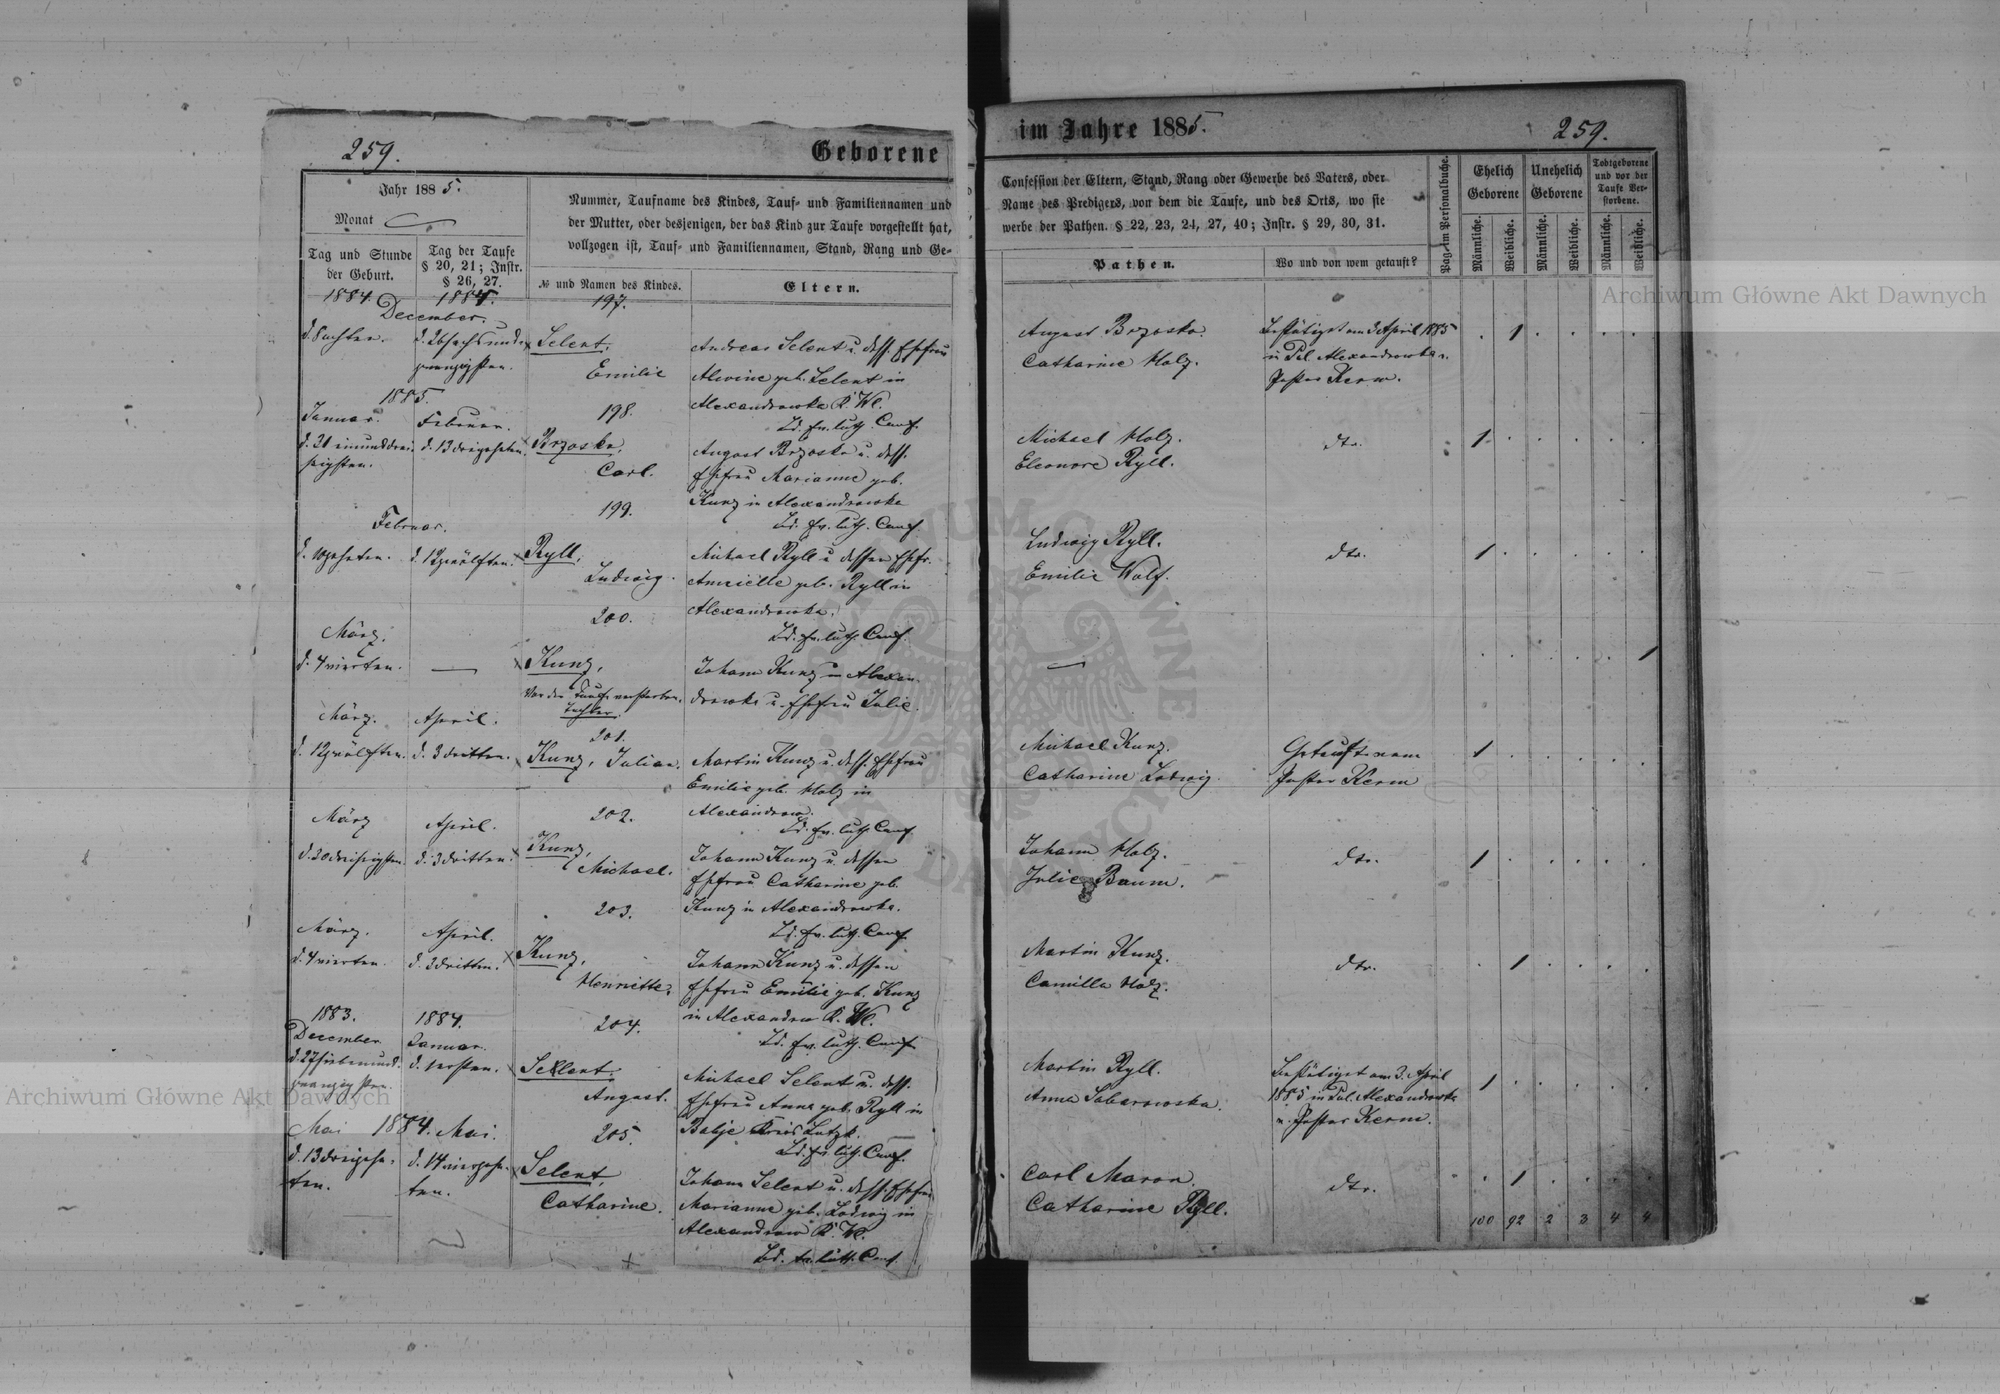 259.
Geborene
Jahr 1885.
Monat
Tag und Stunde
der Geburt.
Tag der Taufe
§ 20, 21; Instr.
§ 26, 27.
Nummer, Taufname des Kindes, Tauf- und Familiennamen und
der Mutter, oder desjenigen, der das Kind zur Taufe vorgestellt hat,
vollzogen ist, Tauf- und Familiennamen, Stand, Rang und Ge-
№ und Namen des Kindes.
Eltern.
1884. 1884.
December.
197.
d. 8 achten.
d. 26 sechs und
zwanzigsten.
Selent,
Emilie
Andreas Selent u. dess. Ehefrau
Alwine geb. Selent in
Alexandrowka K. Wl.
Bd. ev. luth. Conf.
1885.
Januar.
Februar.
198.
d. 31 einunddrei-
ssigsten.
d. 13 dreizehnten.
Brzoska,
Carl.
August Brzoska u. dess.
Ehefrau Marianne geb.
Kunz in Alexandrowka
Bd. ev. luth. Conf.
Februar.
199.
d. 10 zehnten.
d. 12 zwölften.
Ryll,
Ludwig.
Michael Ryll u. dessen Ehefr.
geb. Ryll in
Alexandrowka.
Bd. ev. luth. Conf.
März.
200.
d. 4 vierten.
Kunz,
Vor der Taufe verstorben.
Tochter.
Johann Kunz in Alexan-
drowka u. Ehefrau Julie.
März.
April.
201.
d. 12 zwölften.
d. 3 dritten.
Kunz, Julian.
Martin Kunz u. dess. Ehefrau
Emilie geb. Holz in
Alexandrow.
Bd. ev. luth. Conf.
März
April.
202.
d. 30 dreissigsten.
d. 3 dritten.
Kunz,
Michael.
Johann Kunz u. dessen
Ehefrau Catharine geb.
Kunz in Alexandrowka.
Bd. ev. luth. Conf.
März.
April.
203.
d. 4 vierten.
d. 3 dritten.
Kunz,
Henriette.
Johann Kunz u. dessen
Ehefrau Emilie geb. Kunz
in Alexandrow K. Wl.
Bd. ev. luth. Conf.
1883.
December.
1884.
Januar.
204.
d. 27 siebenund-
zwanzigsten.
d. 1 ersten.
Sellent,
August.
Michael Selent u. dess.
Ehefrau Anna geb. Ryll in
Babje Kreis Lutzk.
Bd. ev. luth. Conf.
Mai 1884. Mai.
205.
d. 13 dreizehn-
ten.
d. 14 vierzehn-
ten.
Selent,
Catharine.
Johann Selent u. dess. Ehefrau
Marianne geb. Ludwig in
Alexandrow K. Wl.
Bd. ev. luth. Conf.
im Jahre 1885.
259.
Confession der Eltern, Stand, Rang oder Gewerbe des Vaters, oder
Name des Predigers, von dem die Taufe, und des Orts, wo sie
werbe der Pathen. § 22, 23, 24, 27, 40; Instr. § 29, 30, 31.
Pathen.
Wo und von wem getauft?
Pag. im Personalbuche.
Ehelich
Geborene
Unehelich
Geborene
Todtgeborene
und vor der
Taufe Ver-
storbene.
Männliche.
Weibliche.
Männliche.
Weibliche.
Männliche.
Weibliche.
August Brzoska.
Catharine Holz.
Bestätiget am 3 April 1885
in Pol. Alexandrowka v.
Pastor Kerm.
1
Michael Holz.
Eleonore Ryll.
dto.
1
Ludwig Ryll.
Emilie Wolf.
dto.
1
1
Michael Kunz.
Catharine Ludwig.
Getauft vom
Pastor Kerm
1
Johann Holz.
Julie Baum.
dto.
1
Martin Kunz.
Camilla Holz.
dto.
1
Martin Ryll.
Anna Saborowska.
Bestätiget am 3. April
1885 in Pol. Alexandrowka
v. Pastor Kerm.
1
Carl Maron.
Catharine Ryll.
dto.
1
100 92 2 3 4 4
Archiwum Główne Akt Dawnych
Archiwum Główne Akt Dawnych